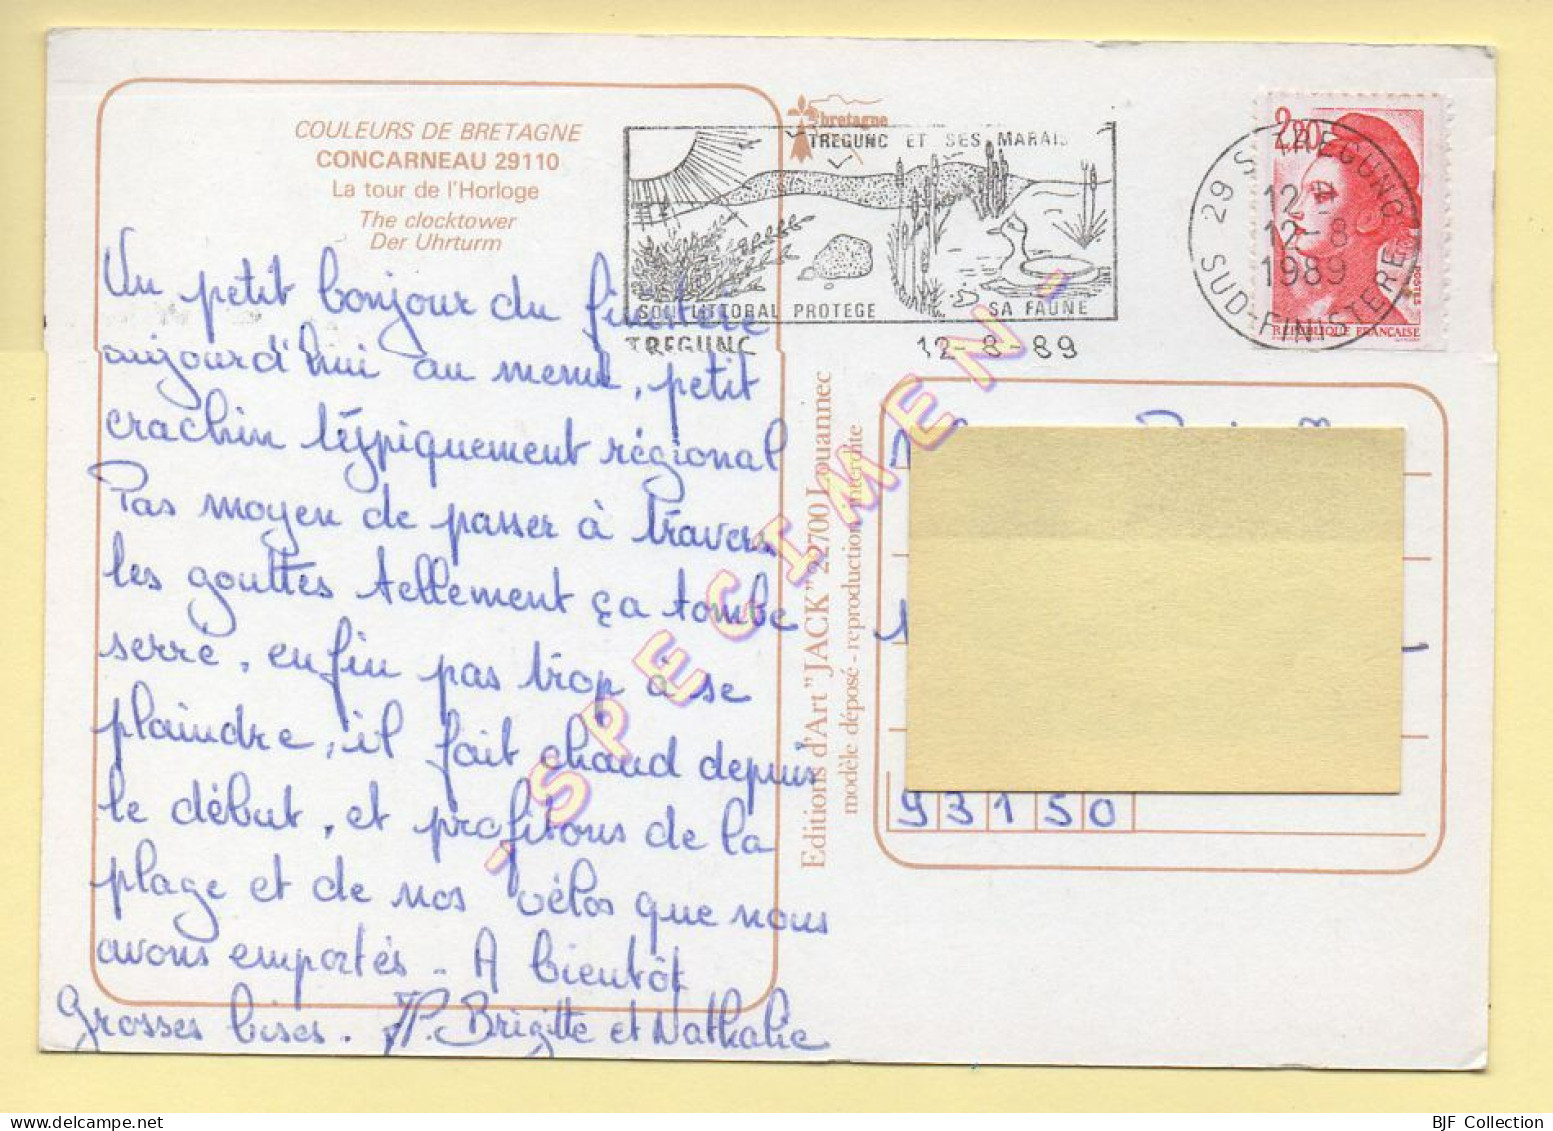 COULEURS DE BRETAGNE
CONCARNEAU 29110
La tour de l'Horloge
The clocktower
Der Uhrturm
Un petit bonjour du finistère
aujourd'hui au menu, petit
crachin typiquement régional
Pas moyen de passer à travers
les gouttes tellement ça tombe
serré, enfin pas trop à se
plaindre, il fait chaud depuis
le début, et profitons de la
plage et de nos vélos que nous
avons emportés. A bientôt
Grosses bises. JP. Brigitte et Nathalie
bretagne
TREGUNC ET SES MARAIS
SON LITTORAL PROTEGE SA FAUNE
TREGUNC 12-8-89
29 S TREGUNC
12-8
1989
SUD-FINISTERE
2,20
POSTES
REPUBLIQUE FRANÇAISE
Editions d'Art "JACK" 22700 Louannec
modèle déposé - reproduction interdite
- SPECIMEN -
93150
BJF Collection